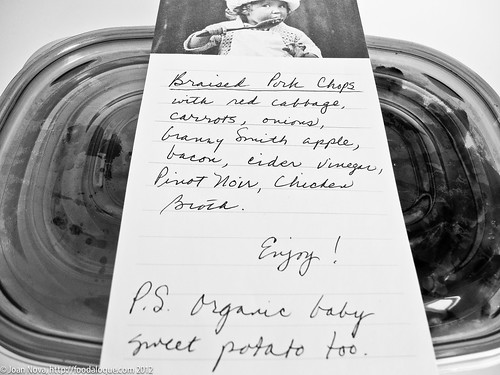 Braised Pork Chops
with red cabbage,
carrots, onions,
Granny Smith apple,
bacon, cider vinegar,
Pinot Noir, Chicken
Broth.
Enjoy!
P.S. Organic baby
sweet potato too.
© Joan Nova, http://foodalogue.com 2012